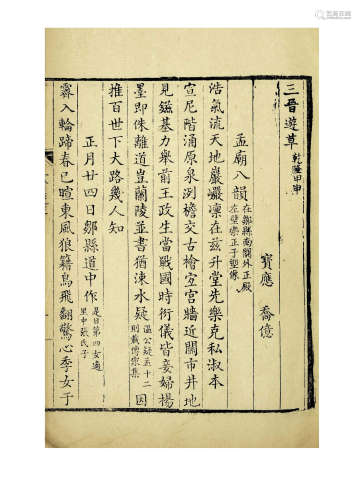 三晉遊草 乾隆甲申
寶應 喬億
孟廟八韻 在鄒縣南關外正殿
左壁樂正子塑像
浩氣流天地巖巖凜在兹升堂先樂克私淑本
宣尼階涌原泉冽檐交古檜宐宮牆近闤市井地
見鎡基力舉前王政生當戰國時衍儀皆妾婦楊
墨即侏離道豈蘭陵並書猶涑水疑 溫公疑孟十二
則載傳家集 因
推百世下大路幾人知
正月廿四日鄒縣道中作 是日第四女適
里中張氏子
霽入輪蹄春已暄東風狼籍鳥飛翻驚心季女于